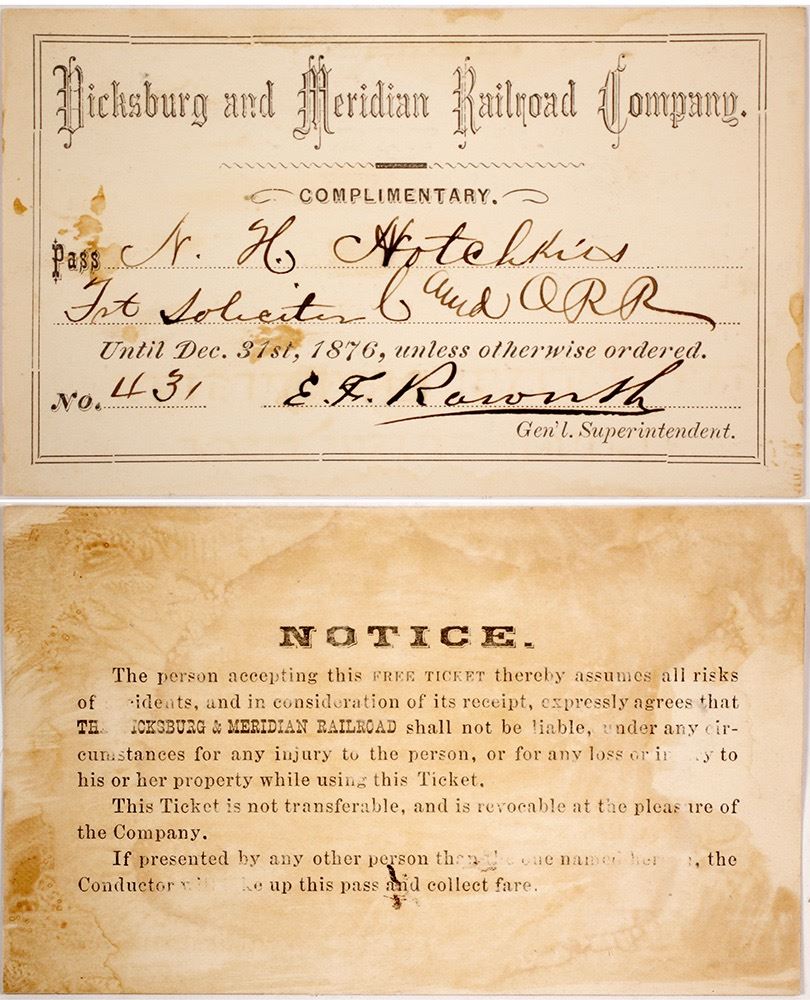 Vicksburg and Meridian Railroad Company.
COMPLIMENTARY.
Pass N. H. Hotchkiss
Frt Soliciter C and O R R
Until Dec. 31st, 1876, unless otherwise ordered.
No. 431
E. F. Raworth
Gen'l. Superintendent.
NOTICE.
The person accepting this FREE TICKET thereby assumes all risks
of idents, and in consideration of its receipt, expressly agrees that
TH ICKSBURG & MERIDIAN RAILROAD shall not be liable, under any cir-
cumstances for any injury to the person, or for any loss or in y to
his or her property while using this Ticket.
This Ticket is not transferable, and is revocable at the pleasure of
the Company.
If presented by any other person than the one named , the
Conductor up this pass and collect fare.